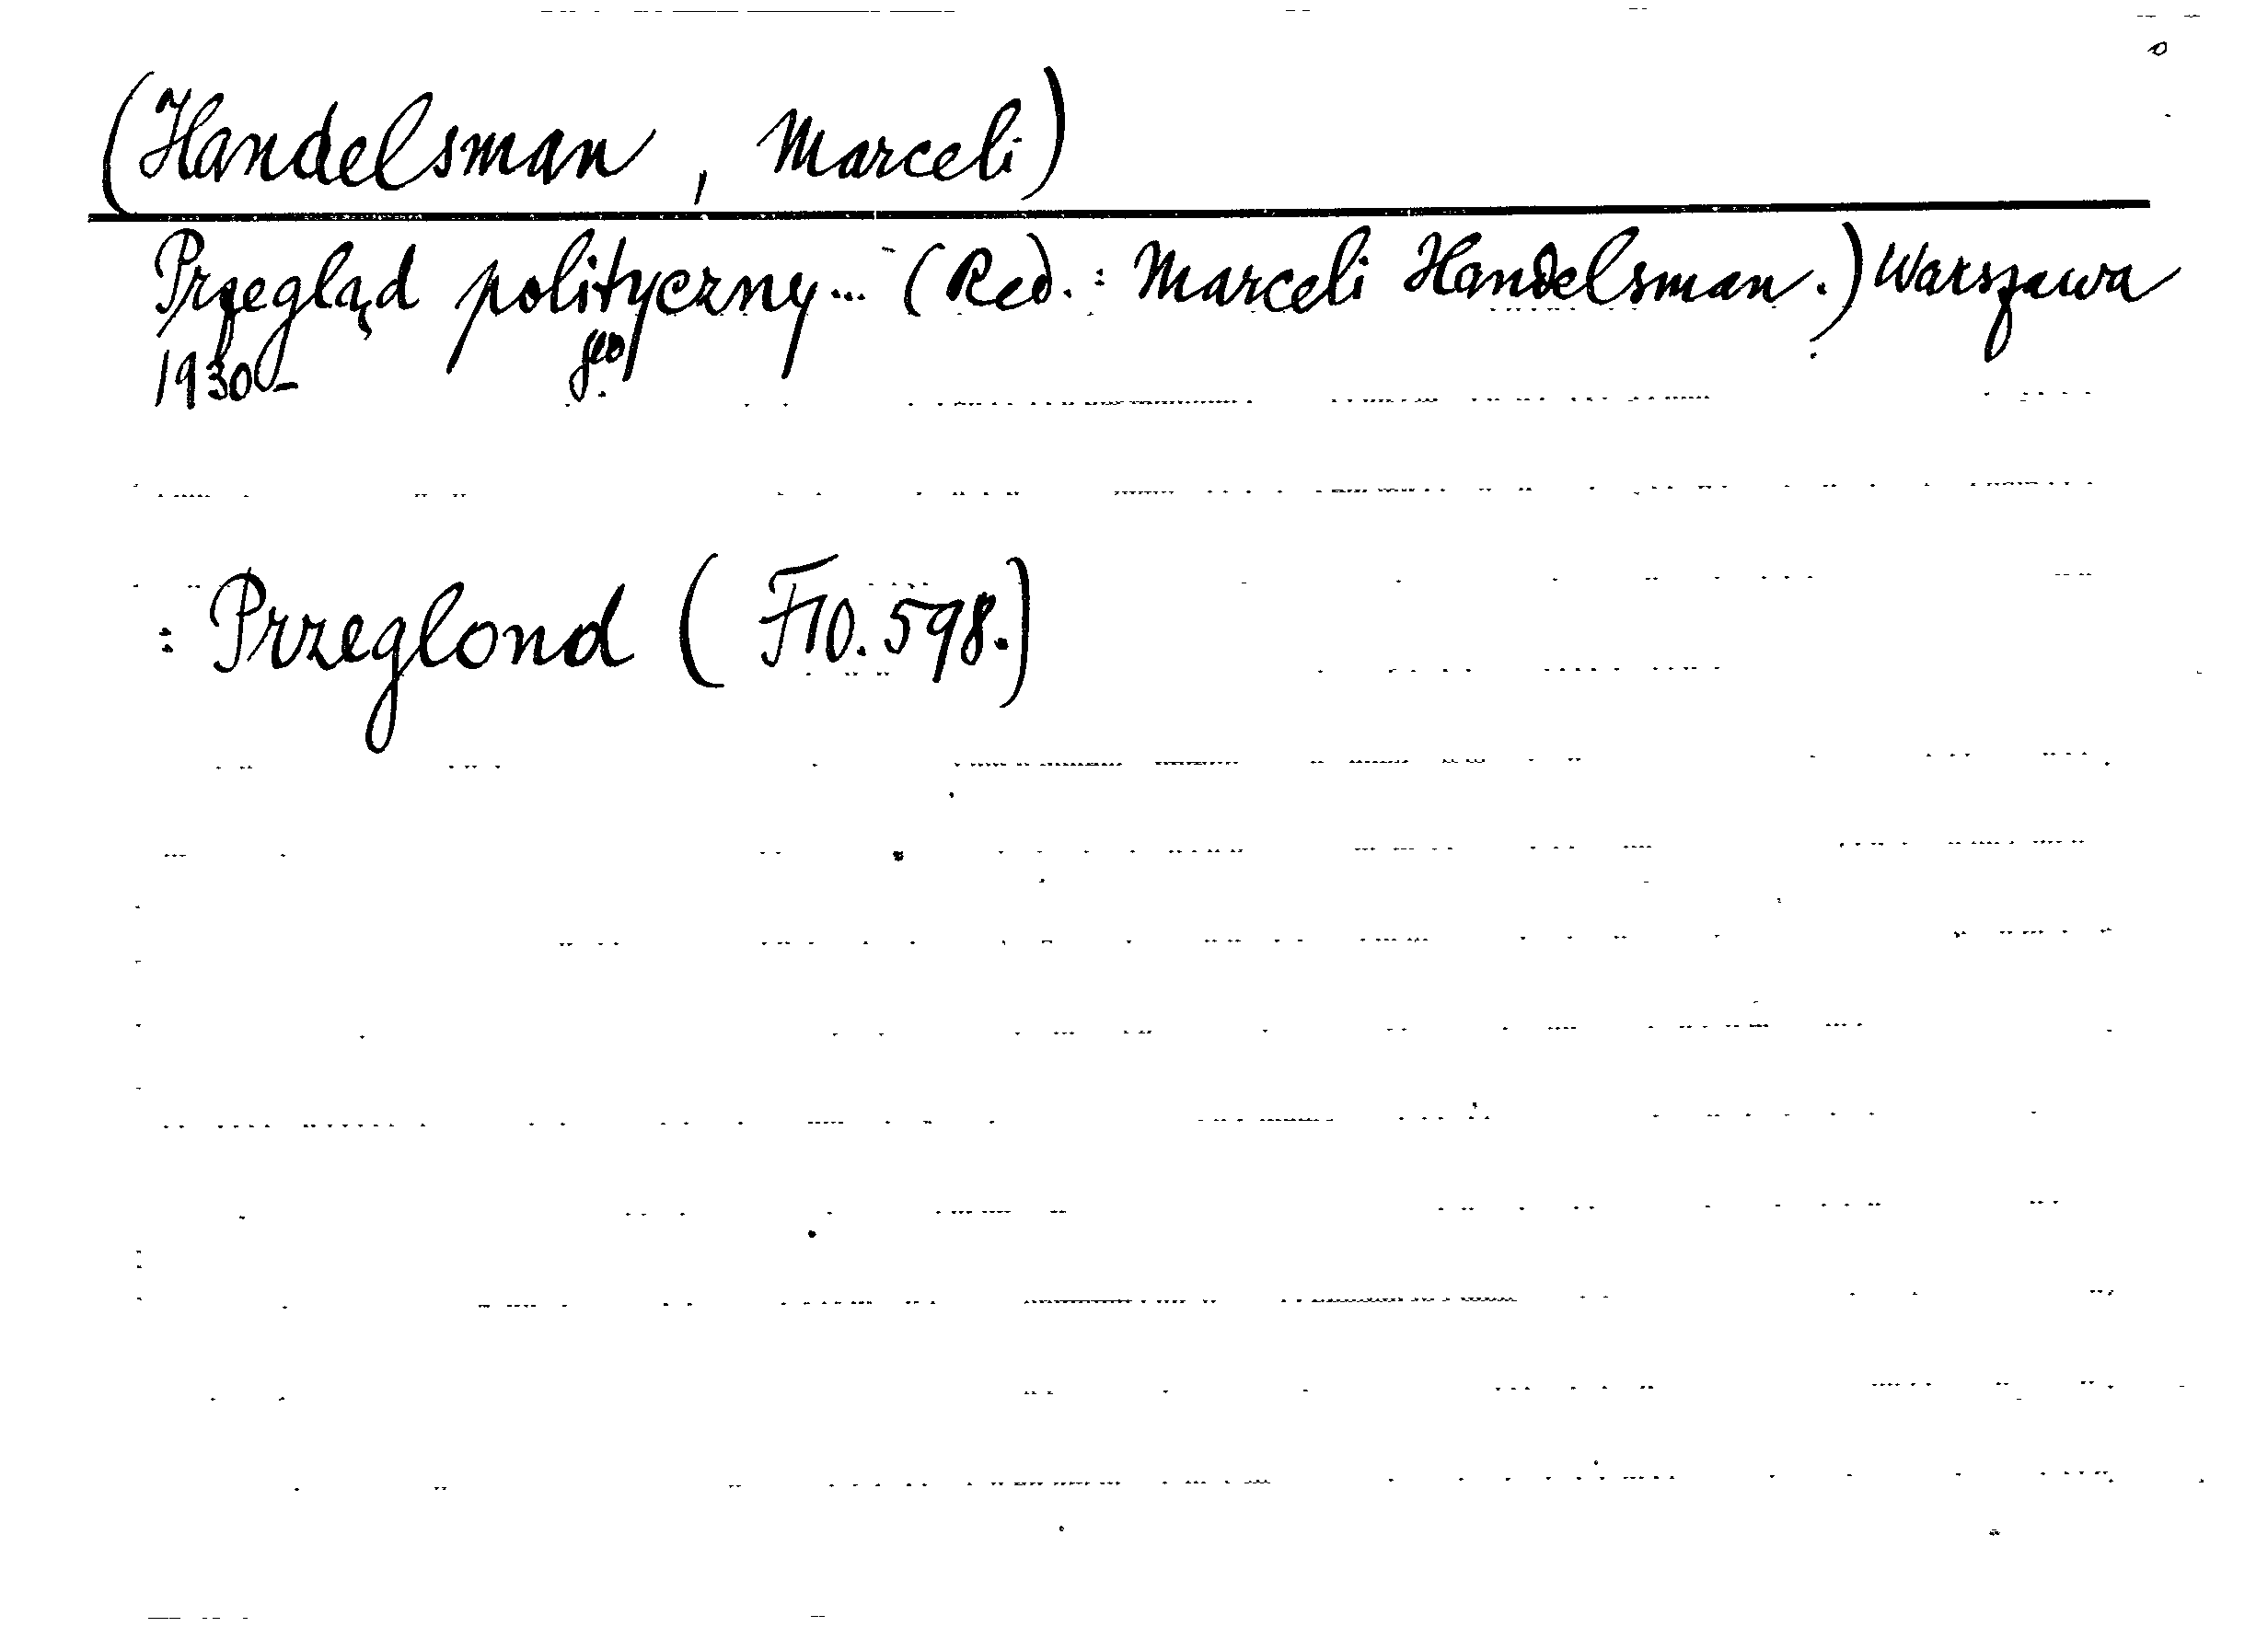 (Handelsman, Marceli)
Przegląd polityczny... (Red.: Marceli Handelsman.) Warszawa
1930-
: Przeglond (F10.598.)